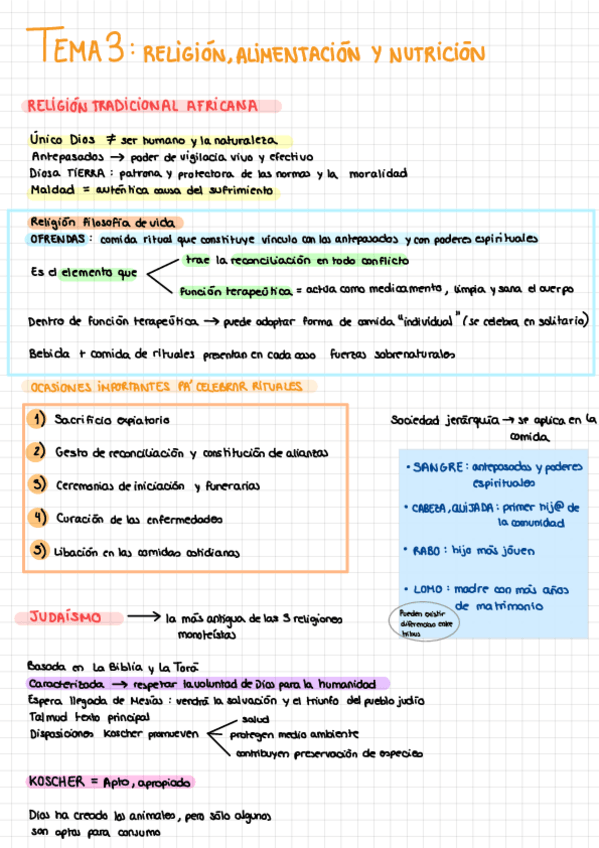 TEMA 3: RELIGIÓN, ALIMENTACIÓN Y NUTRICIÓN
RELIGIÓN TRADICIONAL AFRICANA
Único Dios ≠ ser humano y la naturaleza
Antepasados → poder de vigilacia vivo y efectivo
Diosa TIERRA: patrona y protectora de las normas y la moralidad
Maldad = auténtica causa del sufrimiento
Religión filosofía de vida
OFRENDAS: comida ritual que constituye vínculo con los antepasados y con poderes espirituales
Es el elemento que
trae la reconciliación en todo conflicto
función terapeútica = actúa como medicamento, limpia y sana el cuerpo
Dentro de función terapeútica → puede adoptar forma de comida "individual" (se celebra en solitario)
Bebida + comida de rituales presentan en cada caso fuerzas sobrenaturales
OCASIONES IMPORTANTES PA' CELEBRAR RITUALES
1) Sacrificio expiatorio
2) Gesto de reconciliación y constitución de alianzas
3) Ceremonias de iniciación y funerarias
4) Curación de las enfermedades
5) Libación en las comidas cotidianas
Sociedad jerárquia → se aplica en la
comida
• SANGRE: antepasados y poderes
espirituales
• CABEZA, QUIJADA: primer hij@ de
la comunidad
• RABO: hijo más jóven
• LOMO: madre con más años
de matrimonio
Pueden existir
diferencias entre
tribus
JUDAÍSMO → la más antigua de las 3 religiones
monoteístas
Basada en La Biblia y la Torá
Caracterizada → respetar la voluntad de Dios para la humanidad
Espera llegada de Mesías: vendrá la salvación y el triunfo del pueblo judío
Talmud texto principal
Disposiciones Koscher promueven
salud
protegen medio ambiente
contribuyen preservación de especies
KOSCHER = Apto, apropiado
Dios ha creado los animales, pero sólo algunos
son aptos para consumo